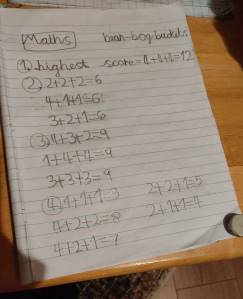 Maths bean-bag buckets
① highest score=4+4+4=12
② 2+2+2=6
4+1+1=6
3+2+1=6
③ 4+3+2=9
1+4+4=9
3+3+3=9
④ 1+1+1=3 2+2+1=5
4+2+2=8 2+1+1=4
4+2+1=7